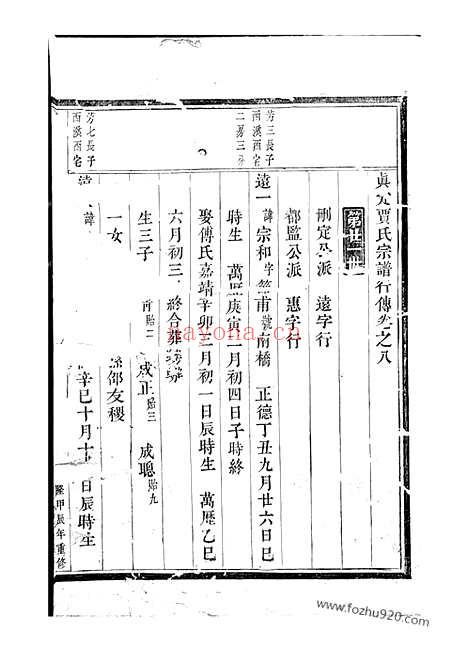 真定賈氏宗譜行傳卷之八
第廿世
刑定公派 遠字行
都監公派 惠字行
芳三長子
西溪西宅
遠一 諱宗和字 甫號南橋 正德丁丑九月廿六日巳
二房三
時生 萬歷庚寅二月初四日子時終
娶傅氏嘉靖辛卯三月初一日辰時生 萬歷乙巳
六月初三 終合葬
生三子 貽二 成正貽三 成聰貽九
一女 邵友稷
芳七長子
西溪西宅
遠 諱 辛巳十月十 日辰時生
隆甲辰年重修
nayona.cn
www.fozhu920.com